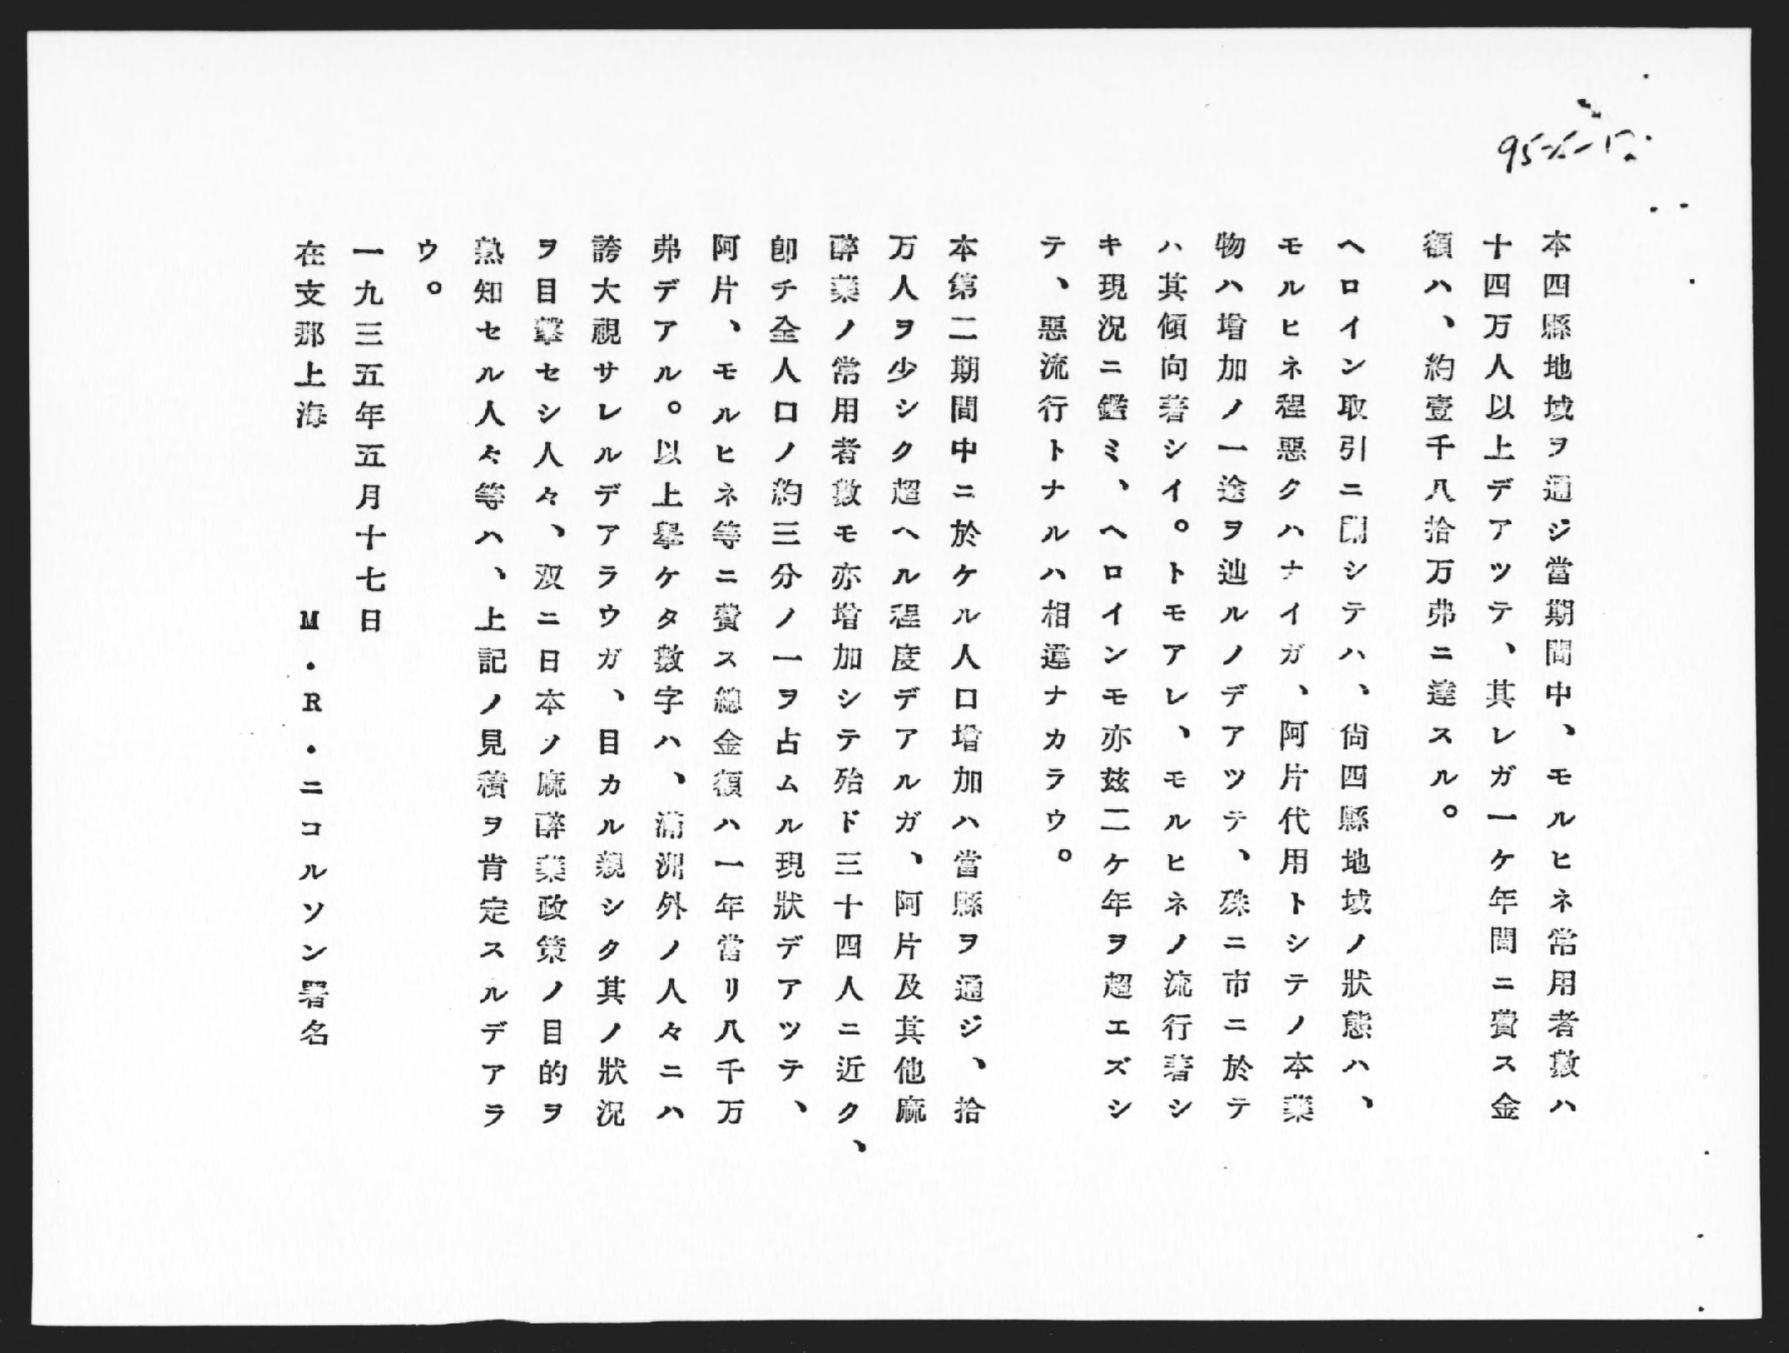 本四縣地域ヲ通ジ當期間中、モルヒネ常用者數ハ
十四万人以上デアツテ、其レガ一ケ年間ニ費ス金
額ハ、約壹千八拾万弗ニ達スル。
ヘロイン取引ニ關シテハ、尙四縣地域ノ狀態ハ、
モルヒネ程惡クハナイガ、阿片代用トシテノ本藥
物ハ增加ノ一途ヲ辿ルノデアツテ、殊ニ市ニ於テ
ハ其傾向著シイ。トモアレ、モルヒネノ流行著シ
キ現況ニ鑑ミ、ヘロインモ亦玆二ケ年ヲ超エズシ
テ、惡流行トナルハ相違ナカラウ。
本第二期間中ニ於ケル人口增加ハ當縣ヲ通ジ、拾
万人ヲ少シク超ヘル程度デアルガ、阿片及其他麻
醉藥ノ常用者數モ亦增加シテ殆ド三十四人ニ近ク、
卽チ全人口ノ約三分ノ一ヲ占ムル現狀デアツテ、
阿片、モルヒネ等ニ費ス總金額ハ一年當リ八千万
弗デアル。以上擧ケタ數字ハ、滿洲外ノ人々ニハ
誇大視サレルデアラウガ、目カル親シク其ノ狀況
ヲ目擊セシ人々、及ニ日本ノ麻醉藥政策ノ目的ヲ
熟知セル人々等ハ、上記ノ見積ヲ肯定スルデアラ
ウ。
一九三五年五月十七日
在支那上海 M・R・ニコルソン署名